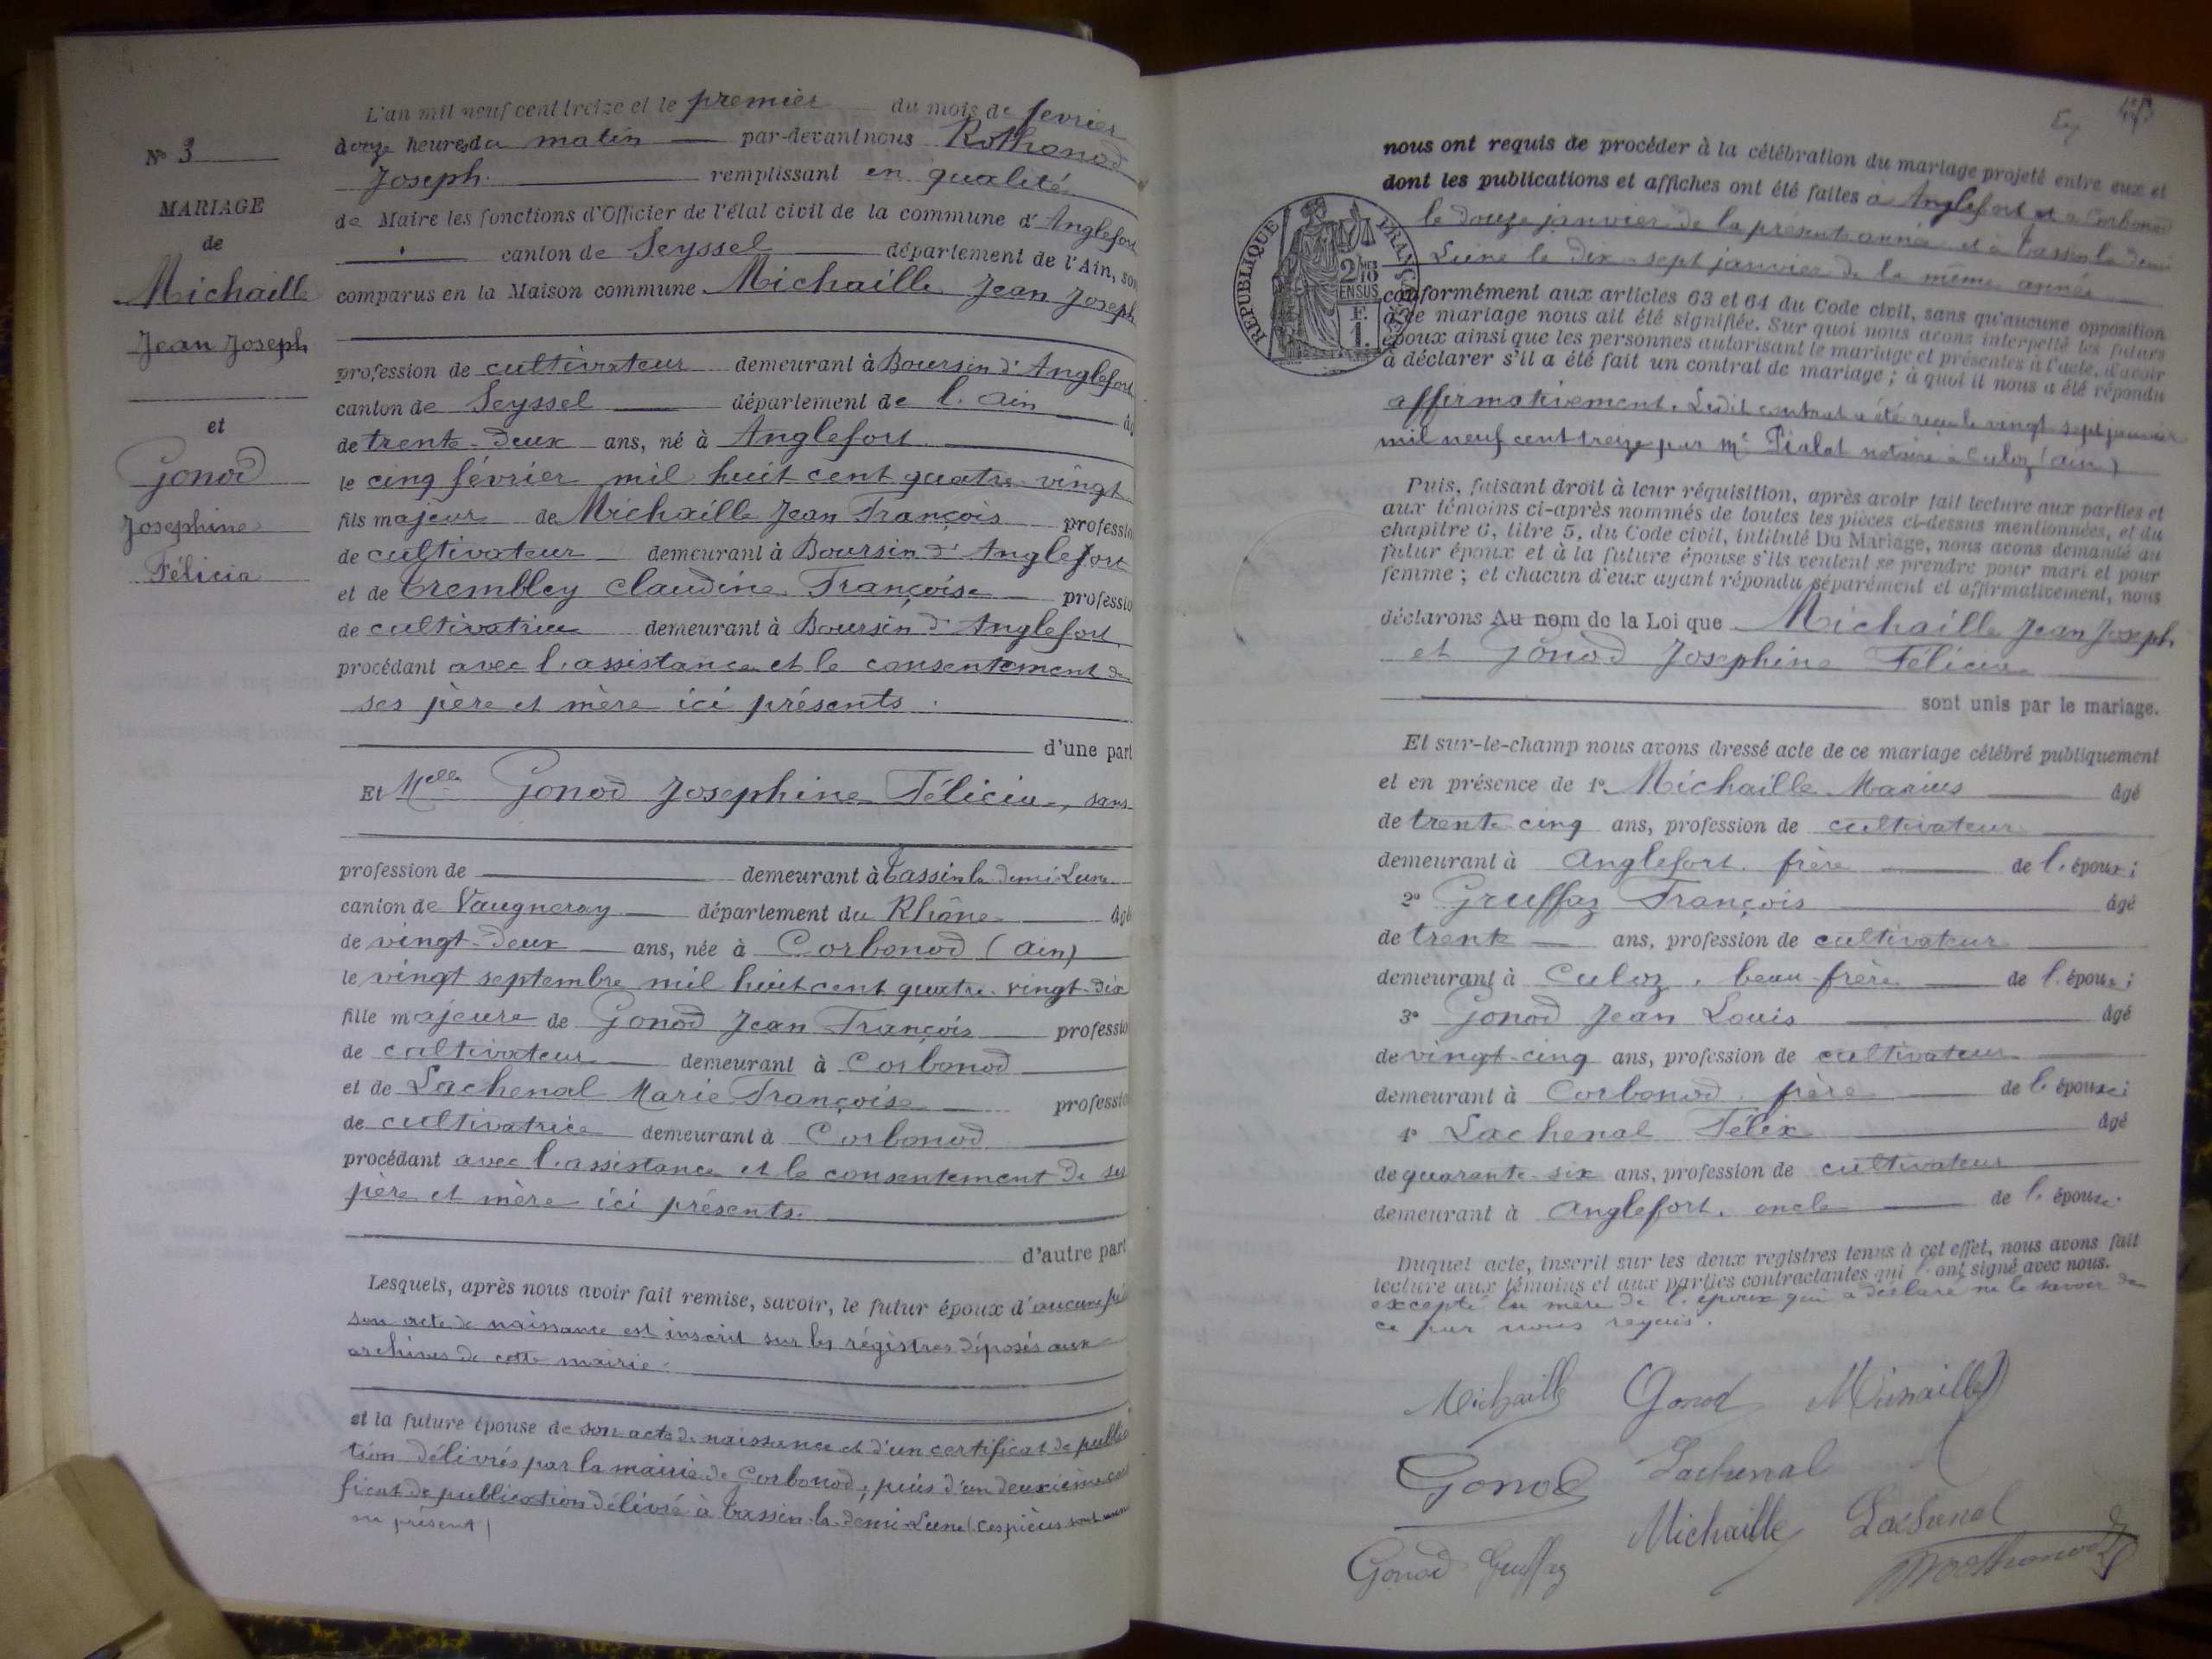 N° 3
MARIAGE
de
Michaille
Jean Joseph
et
Gonod
Josephine
Félicia
L'an mil neuf cent treize et le premier du mois de fevrier
heures du matin par-devant nous Rothonod
Joseph. remplissant en qualité
de Maire les fonctions d'Officier de l'état civil de la commune d'Anglefort
canton de Seyssel département de l'Ain, son
comparus en la Maison commune Michaille Jean Joseph
profession de cultivateur demeurant à Boursin d'Anglefort
canton de Seyssel département de l'Ain âg
de trente-deux ans, né à Anglefort
le cinq février mil huit cent quatre-vingt
fils majeur de Michaille Jean François professio
de cultivateur demeurant à Boursin d'Anglefort
et de Trembley Claudine Françoise professio
de cultivatrice demeurant à Boursin d'Anglefort
procédant avec l'assistance et le consentement de
ses père et mère ici présents.
d'une part
Et Melle Gonod Josephine Félicia, sans
profession de demeurant à Tassin la demi-Lune
canton de Vaugneray département du Rhône âgé
de vingt-deux ans, née à Corbonod (Ain)
le vingt septembre mil huit cent quatre-vingt-dix
fille majeure de Gonod Jean François professio
de cultivateur demeurant à Corbonod
et de Lachenal Marie Françoise professio
de cultivatrice demeurant à Corbonod
procédant avec l'assistance et le consentement de ses
père et mère ici présents.
d'autre part
Lesquels, après nous avoir fait remise, savoir, le futur époux d'aucune piè
son acte de naissance est inscrit sur les régistres déposés aux
archives de cette mairie.
et la future épouse de son acte de naissance et d'un certificat de publica
tion délivrés par la mairie de Corbonod, puis d'un deuxième certi
ficat de publication délivré à Tassin-la-demi-Lune (ces pièces sont
présent)
nous ont requis de procéder à la célébration du mariage projeté entre eux et
dont les publications et affiches ont été faites à Anglefort et à Corbonod
le douze janvier de la présente année et à Tassin la demi
Lune le dix-sept janvier de la même année
REPUBLIQUE FRANÇAISE
2/10 MES
EN SUS
F.
1.
conformément aux articles 63 et 64 du Code civil, sans qu'aucune opposition
à ce mariage nous ait été signifiée. Sur quoi nous avons interpellé les futurs
époux ainsi que les personnes autorisant le mariage et présentes à l'acte, d'avoir
à déclarer s'il a été fait un contrat de mariage ; à quoi il nous a été répondu
affirmativement. Ledit contrat a été reçu le vingt sept janvier
mil neuf cent treize par Me Pialat notaire à Culoz (Ain)
Puis, faisant droit à leur réquisition, après avoir fait lecture aux parties et
aux témoins ci-après nommés de toutes les pièces ci-dessus mentionnées, et du
chapitre 6, titre 5, du Code civil, intitulé Du Mariage, nous avons demandé au
futur époux et à la future épouse s'ils veulent se prendre pour mari et pour
femme ; et chacun d'eux ayant répondu séparément et affirmativement, nous
déclarons Au nom de la Loi que Michaille Jean Joseph
et Gonod Josephine Félicia
sont unis par le mariage.
Et sur-le-champ nous avons dressé acte de ce mariage célébré publiquement
et en présence de 1° Michaille Marius âgé
de trente cinq ans, profession de cultivateur
demeurant à Anglefort. frère de l'époux ;
2° Gruffaz François âgé
de trente ans, profession de cultivateur
demeurant à Culoz, beau-frère de l'époux ;
3° Gonod Jean Louis âgé
de vingt-cinq ans, profession de cultivateur
demeurant à Corbonod. frère de l'épouse ;
4° Lachenal Félix âgé
de quarante-six ans, profession de cultivateur
demeurant à Anglefort. oncle de l'épouse.
Duquel acte, inscrit sur les deux registres tenus à cet effet, nous avons fait
lecture aux témoins et aux parties contractantes qui l'ont signé avec nous.
excepté la mère de l'époux qui a déclaré ne le savoir de
ce par nous requis.
Michaille Gonod Michaille
Gonod Lachenal
Michaille Lachenal
Gonod Gruffaz Rothonod